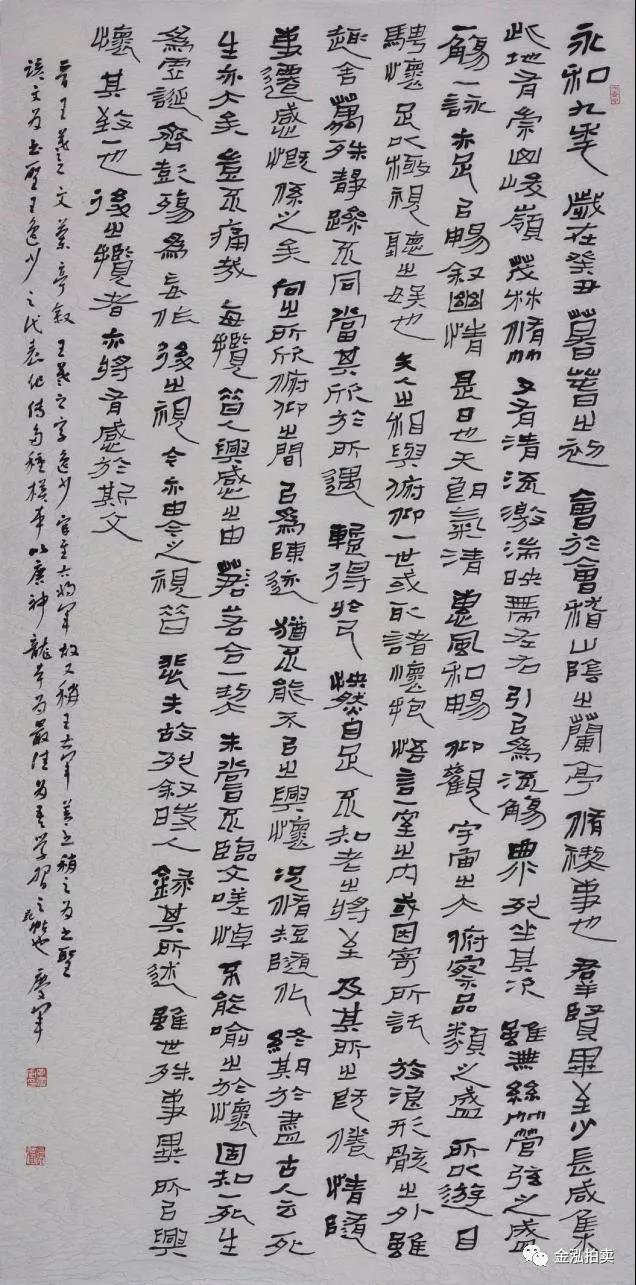 永和九年歲在癸丑暮春之初會於會稽山陰之蘭亭脩禊事也羣賢畢至少長咸集
此地有崇山峻嶺茂林脩竹又有清流激湍映帶左右引以為流觴曲水列坐其次雖無絲竹管弦之盛
一觴一詠亦足以暢叙幽情是日也天朗氣清惠風和暢仰觀宇宙之大俯察品類之盛所以遊目
騁懷足以極視聽之娛也夫人之相與俯仰一世或取諸懷抱悟言一室之內或因寄所託放浪形骸之外雖
趣舍萬殊靜躁不同當其欣於所遇輒得於己怏然自足不知老之將至及其所之既倦情隨
事遷感慨係之矣向之所欣俯仰之間以為陳迹猶不能不以之興懷況脩短隨化終期於盡古人云死
生亦大矣豈不痛哉每攬昔人興感之由若合一契未嘗不臨文嗟悼不能喻之於懷固知一死生
為虛誕齊彭殤為妄作後之視今亦由今之視昔悲夫故列叙時人錄其所述雖世殊事異所以興
懷其致一也後之攬者亦將有感於斯文
晉王羲之文蘭亭叙王羲之字逸少官至右將軍故又稱王右軍善書稱之為書聖
該文為書聖王逸少之代表作傳多種摹本以唐神龍本為最佳為吾學習之帖也慶軍
金泓拍卖